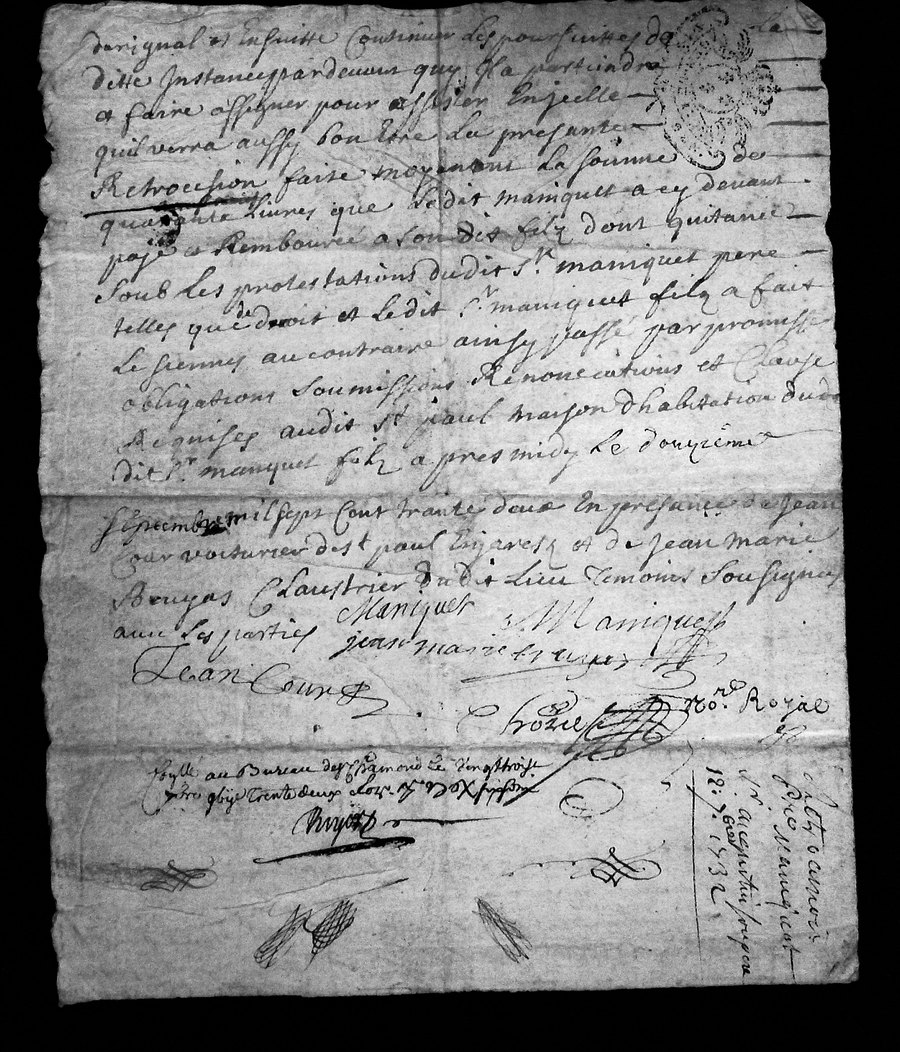 dorignal et Ensuitte Continuer Les poursuittes de La
ditte Instance pardevant quy Il apartiendra
et faire assigner pour assister En jcelle
quil verra aussy bon Etre La presante
Retrocession faite moyenant La somme de
quarante Livres que Ledit maniquet a cy devant
payé et Rembourcé a Son dit filz dont quitance
Soub Les protestations dudit Sr. maniquet pere
telles que de droit et Ledit Sr. maniquet filz a fait
Le Siennes au contraire ainsy passé par promesse
obligations Soumissions Renonciations et Clause
Requises audit St. paul maison d'habitation du
dit Sr. maniquet filz apres midy Le douzieme
Septembre mil Sept Cent trante deux En presance de Jean
Cour voiturier de St. paul En jarest et de Jean marie
Bruyas Claustrier dudit Lieu temoins Sousignes
avec Les parties Maniquet Maniquet
jean marie bruyas
Jean Cour
Nore. Royal
au Bureau de St. Chamond Le vingt trois
7bre trente deux
pere maniquet
12. 7bre 1732